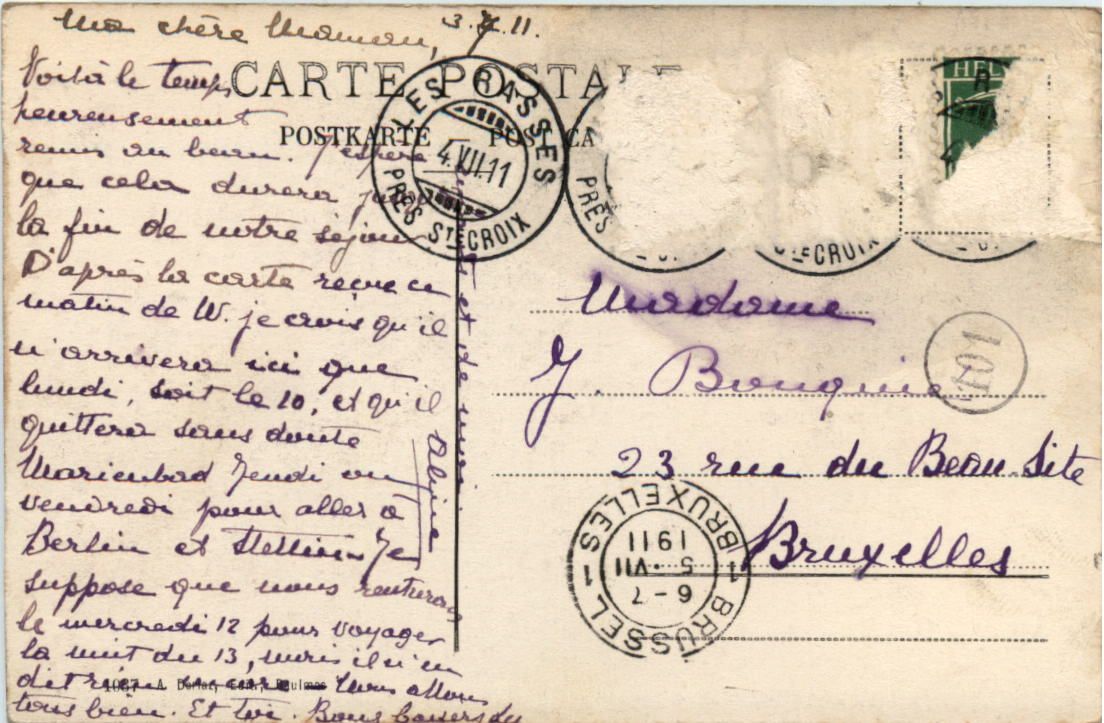 Ma chère Maman, 3.7.11.
Voilà le temps
heureusement
remis au beau. J'espère
que cela durera
la fin de notre séjour
D'après la carte reçue ce
matin de W. je crois qu'il
n'arrivera ici que
lundi, soit le 10, et qu'il
quittera sans doute
Marienbad Jeudi ou
vendredi pour aller à
Berlin et Stettin. Je
suppose que nous rentrerons
le mercredi 12 pour voyager
la nuit du 13, mais il n'en
dit rien encore. Nous allons
tous bien. Et toi. Bons baisers des
et de moi
Aline
CARTE POSTALE
POSTKARTE POST CA
LES RASSES
4.VII.11
PRÈS STE CROIX
PRÈS
STE CROIX
HEL
Madame
J. Bouquié
23 rue du Beau-Site
Bruxelles
101
1 BRUXELLES 1
6-7
5 ·VII
1911
BRUSSEL
1037 A. Deriaz, Edit., Baulmes